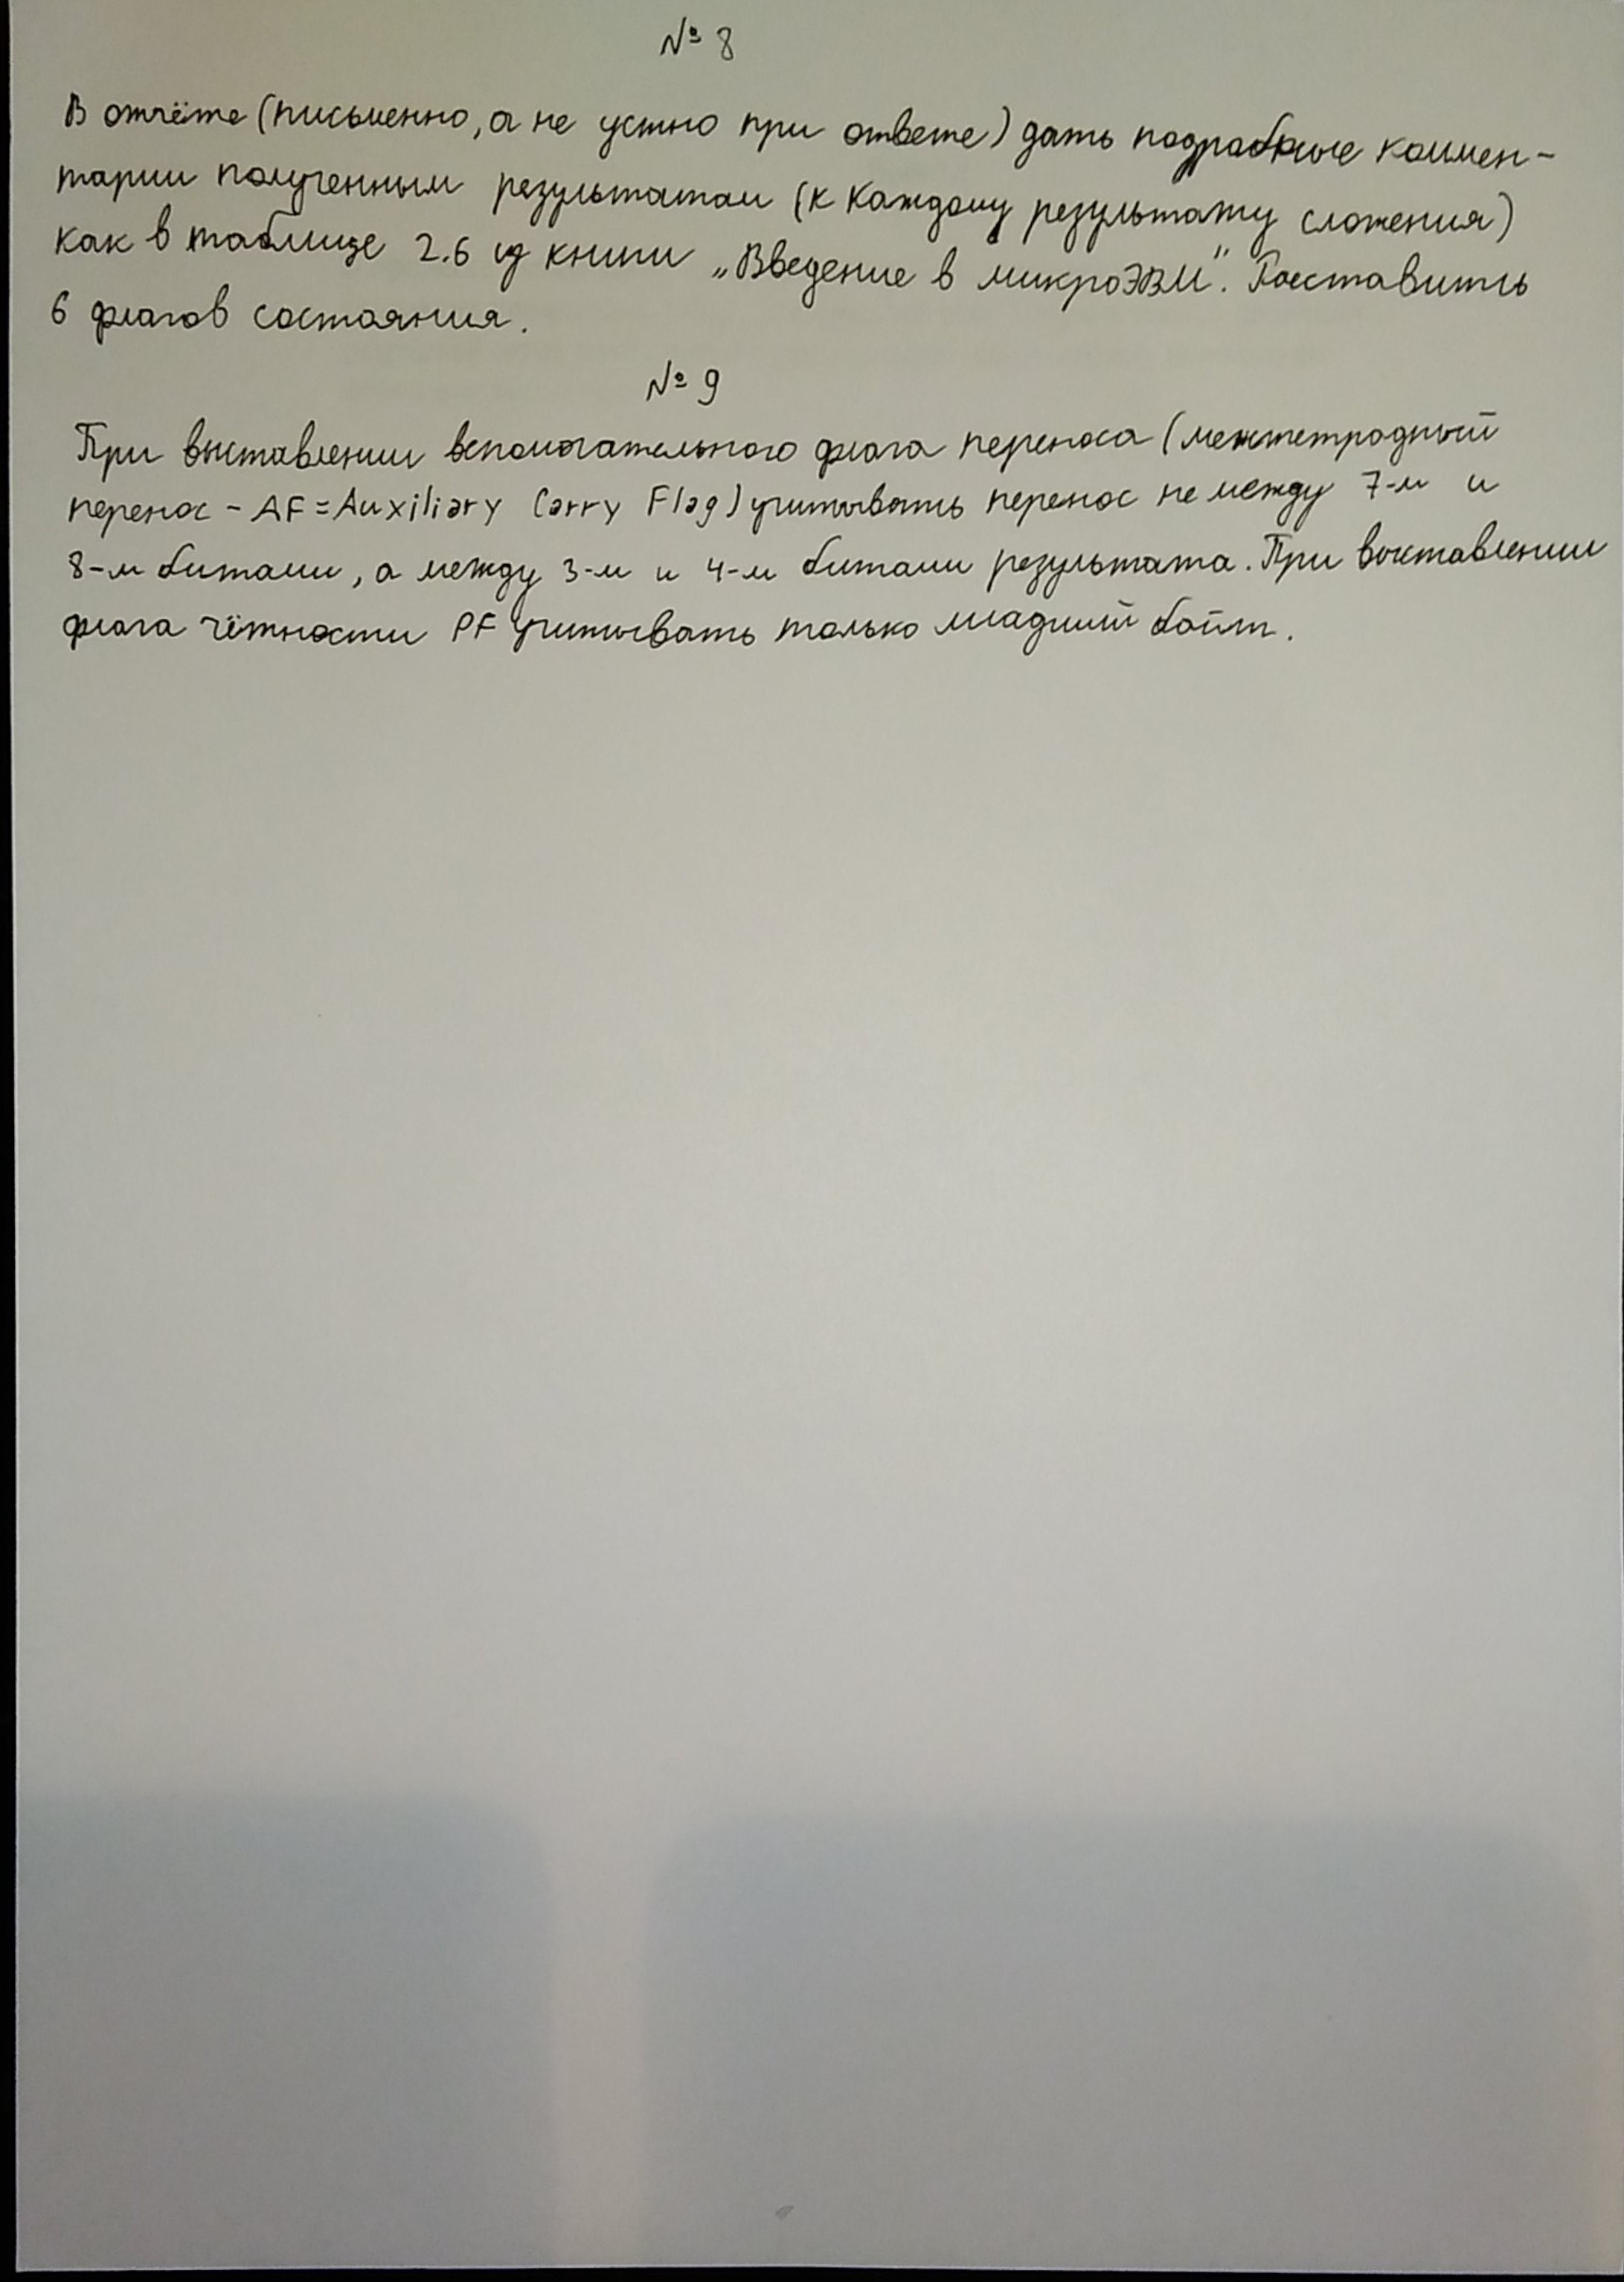 № 8
В отчёте (письменно, а не устно при ответе) дать подробные коммен-
тарии полученным результатам (к каждому результату сложения)
как в таблице 2.6 из книги „Введение в микроЭВМ". Расставить
6 флагов состояния.
№ 9
При выставлении вспомогательного флага переноса (межтетрадный
перенос - AF = Auxiliary Carry Flag) учитывать перенос не между 7-м и
8-м битами, а между 3-м и 4-м битами результата. При выставлении
флага чётности PF учитывать только младший байт.